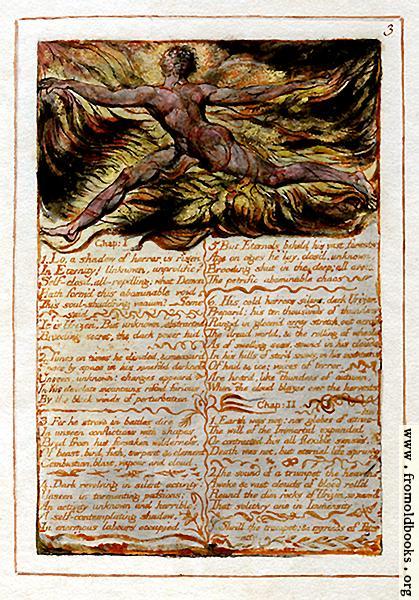 3
Chap: I
1. Lo, a shadow of horror is risen
In Eternity! Unknown, unprolific!
Self-closd, all-repelling: what Demon
Hath form'd this abominable void
This soul-shudd'ring vacuum? Some said
It is Urizen, But unknown, abstracted
Brooding secret, the dark power hid.
2. Times on times he divided, & measur'd
Space by space in his ninefold darkness
Unseen, unknown! changes appeard
In his desolate mountains rifted furious
By the black winds of perturbation
3. For he strove in battles dire
In unseen conflictions with shapes
Bred from his forsaken wilderness,
Of beast, bird, fish, serpent & element
Combustion, blast, vapour and cloud.
4. Dark revolving in silent activity:
Unseen in tormenting passions;
An activity unknown and horrible;
A self-contemplating shadow,
In enormous labours occupied
5. But Eternals beheld his vast forests
Age on ages he lay, clos'd, unknown,
Brooding shut in the deep; all avoid
The petrific abominable chaos
6. His cold horrors silent, dark Urizen
Prepar'd: his ten thousands of thunders
Rang'd in gloom'd array stretch out across
The dread world, & the rolling of wheels
As of swelling seas, sound in his clouds
In his hills of stor'd snows, in his mountains
Of hail & ice; voices of terror,
Are heard, like thunders of autumn,
When the cloud blazes over the harvests
Chap: II
1. Earth was not: nor globes of attraction
The will of the Immortal expanded
Or contracted his all flexible senses.
Death was not, but eternal life sprung
2. The sound of a trumpet the heavens
Awoke & vast clouds of blood roll'd
Round the dim rocks of Urizen, so nam'd
That solitary one in Immensity
3. Shrill the trumpet: & myriads of Eternity
www.fromoldbooks.org